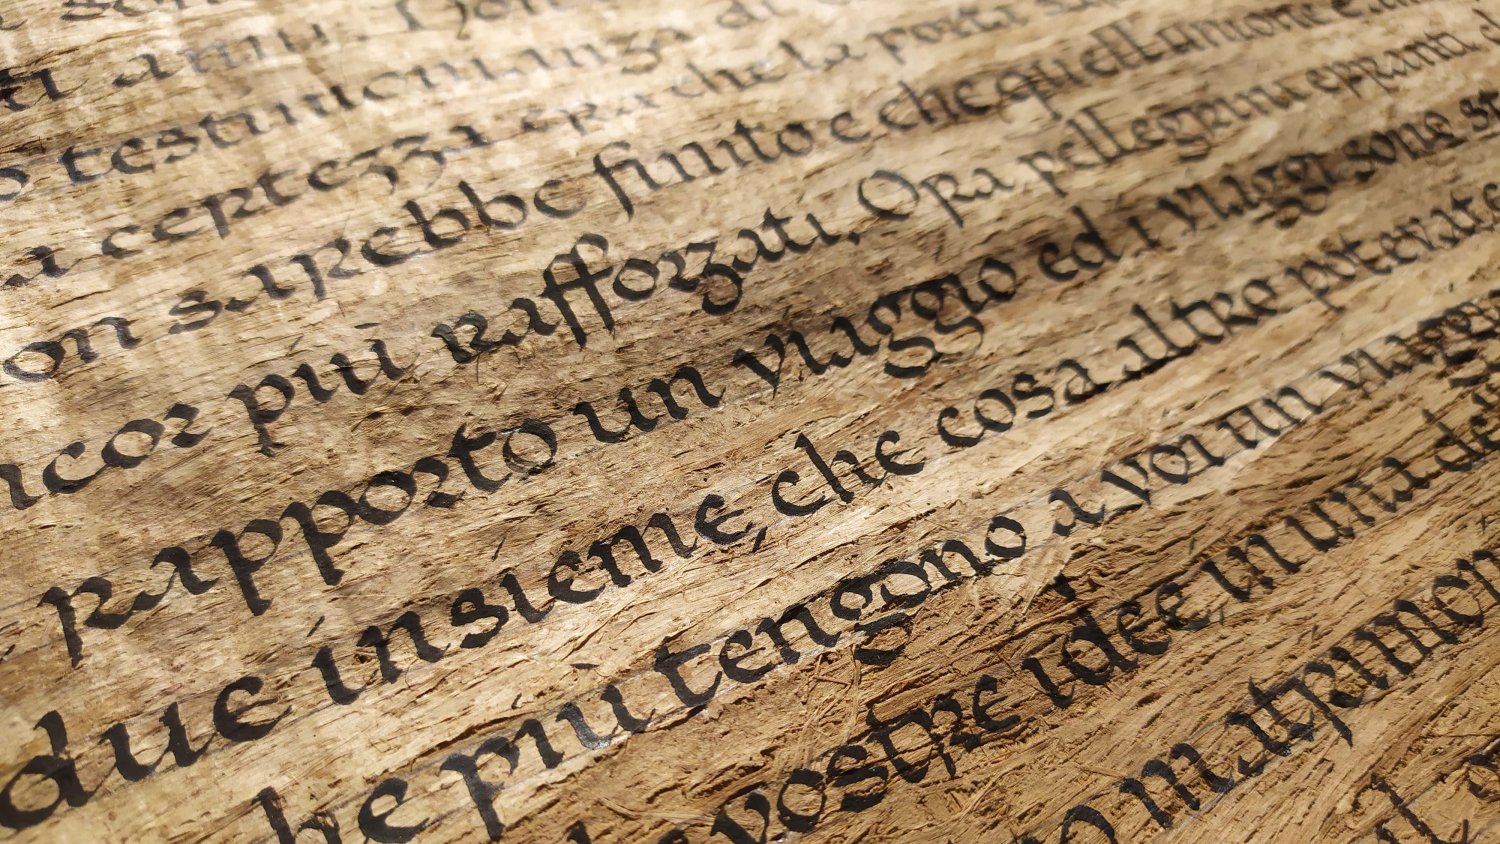 ti anni. Non
testimonianza di
a certezza era che la
on sarebbe finito e che quell'unione e
ncor più rafforzati, Ora pellegrini erranti,
rapporto un viaggio ed i viaggi sono
due insieme che cosa altro potevate
he più tengono a voi un viaggio
vostre idee, in una
matrimon